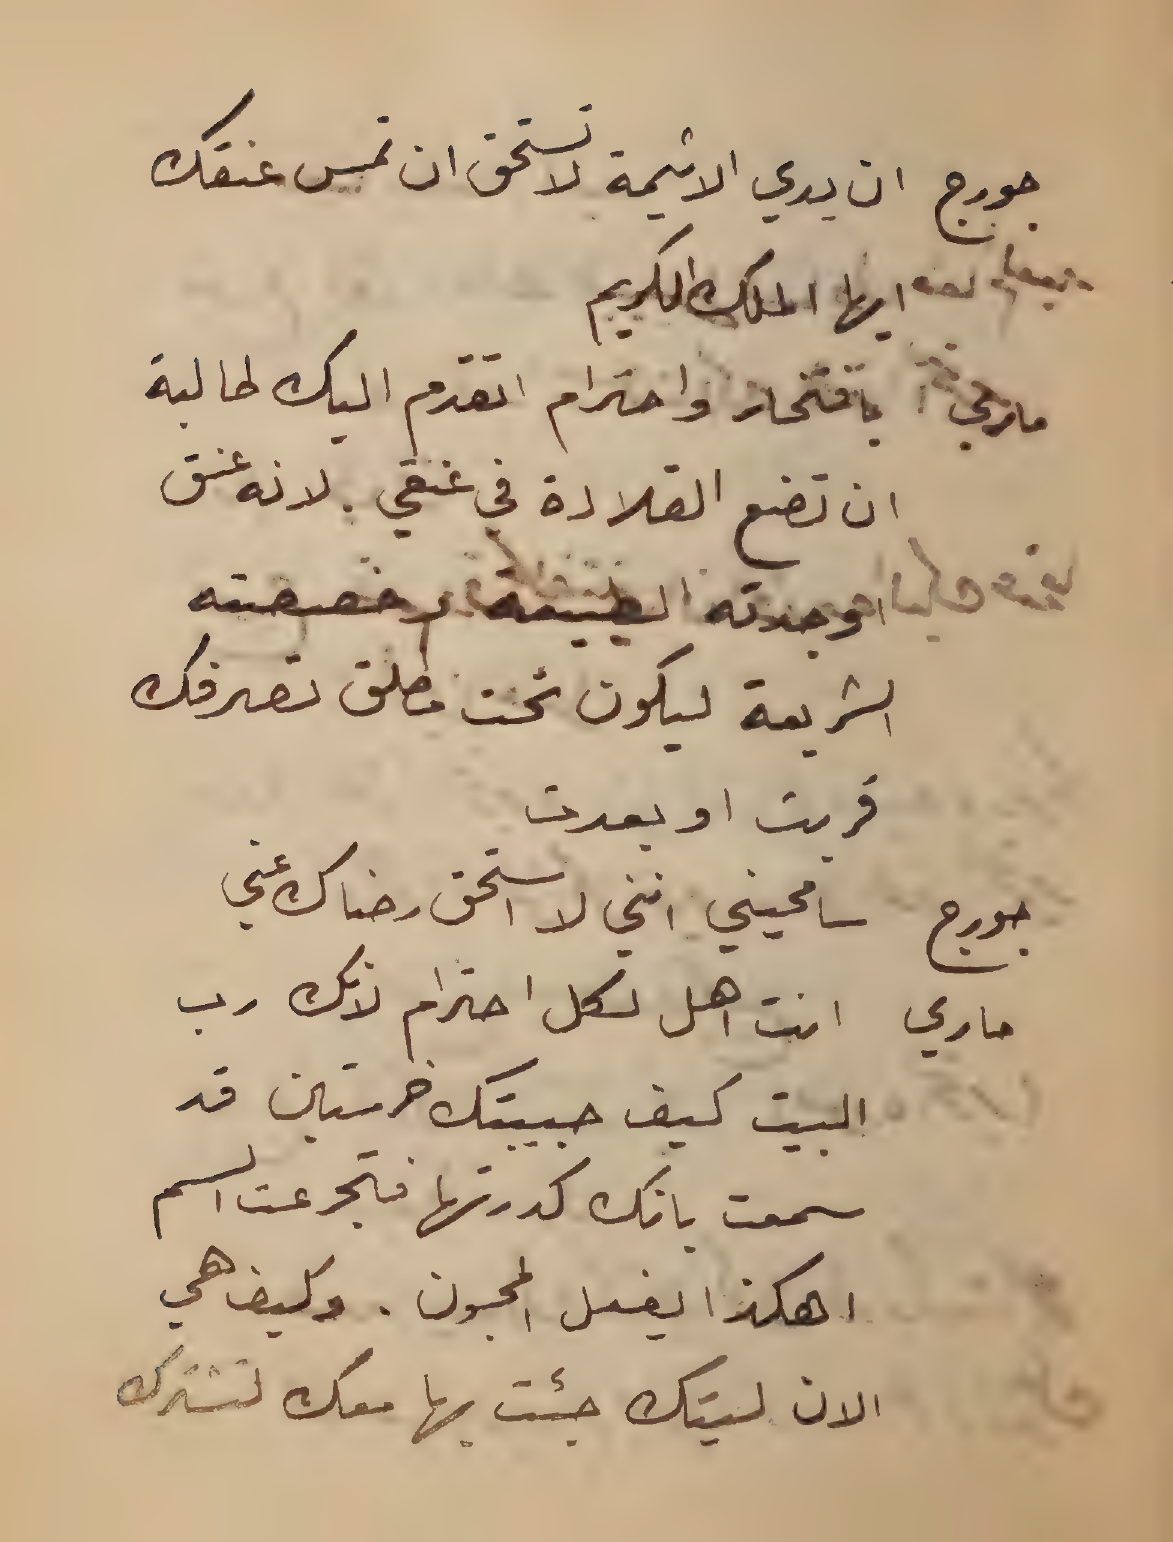 جورج ان يدي الاثيمة لا تستحق ان تمس عنقك
ايها الملك الكريم
ماري بافتخار واحترام اتقدم اليك طالبة
ان تضع القلادة في عنقي . لانه عنق
اوجدته الطبيعة وخصصته
الشريعة ليكون تحت مطلق تصرفك
قربت او بعدت
جورج سامحيني انني لا استحق رضاك عني
ماري انت اهل لكل احترام لانك رب
البيت كيف حبيبتك خرستين قد
سمعت بانك كدرتها فتجرعت السم
اهكذا يفعل المحبون . وكيف هي
الان ليتك جئت بها معك لتشترك